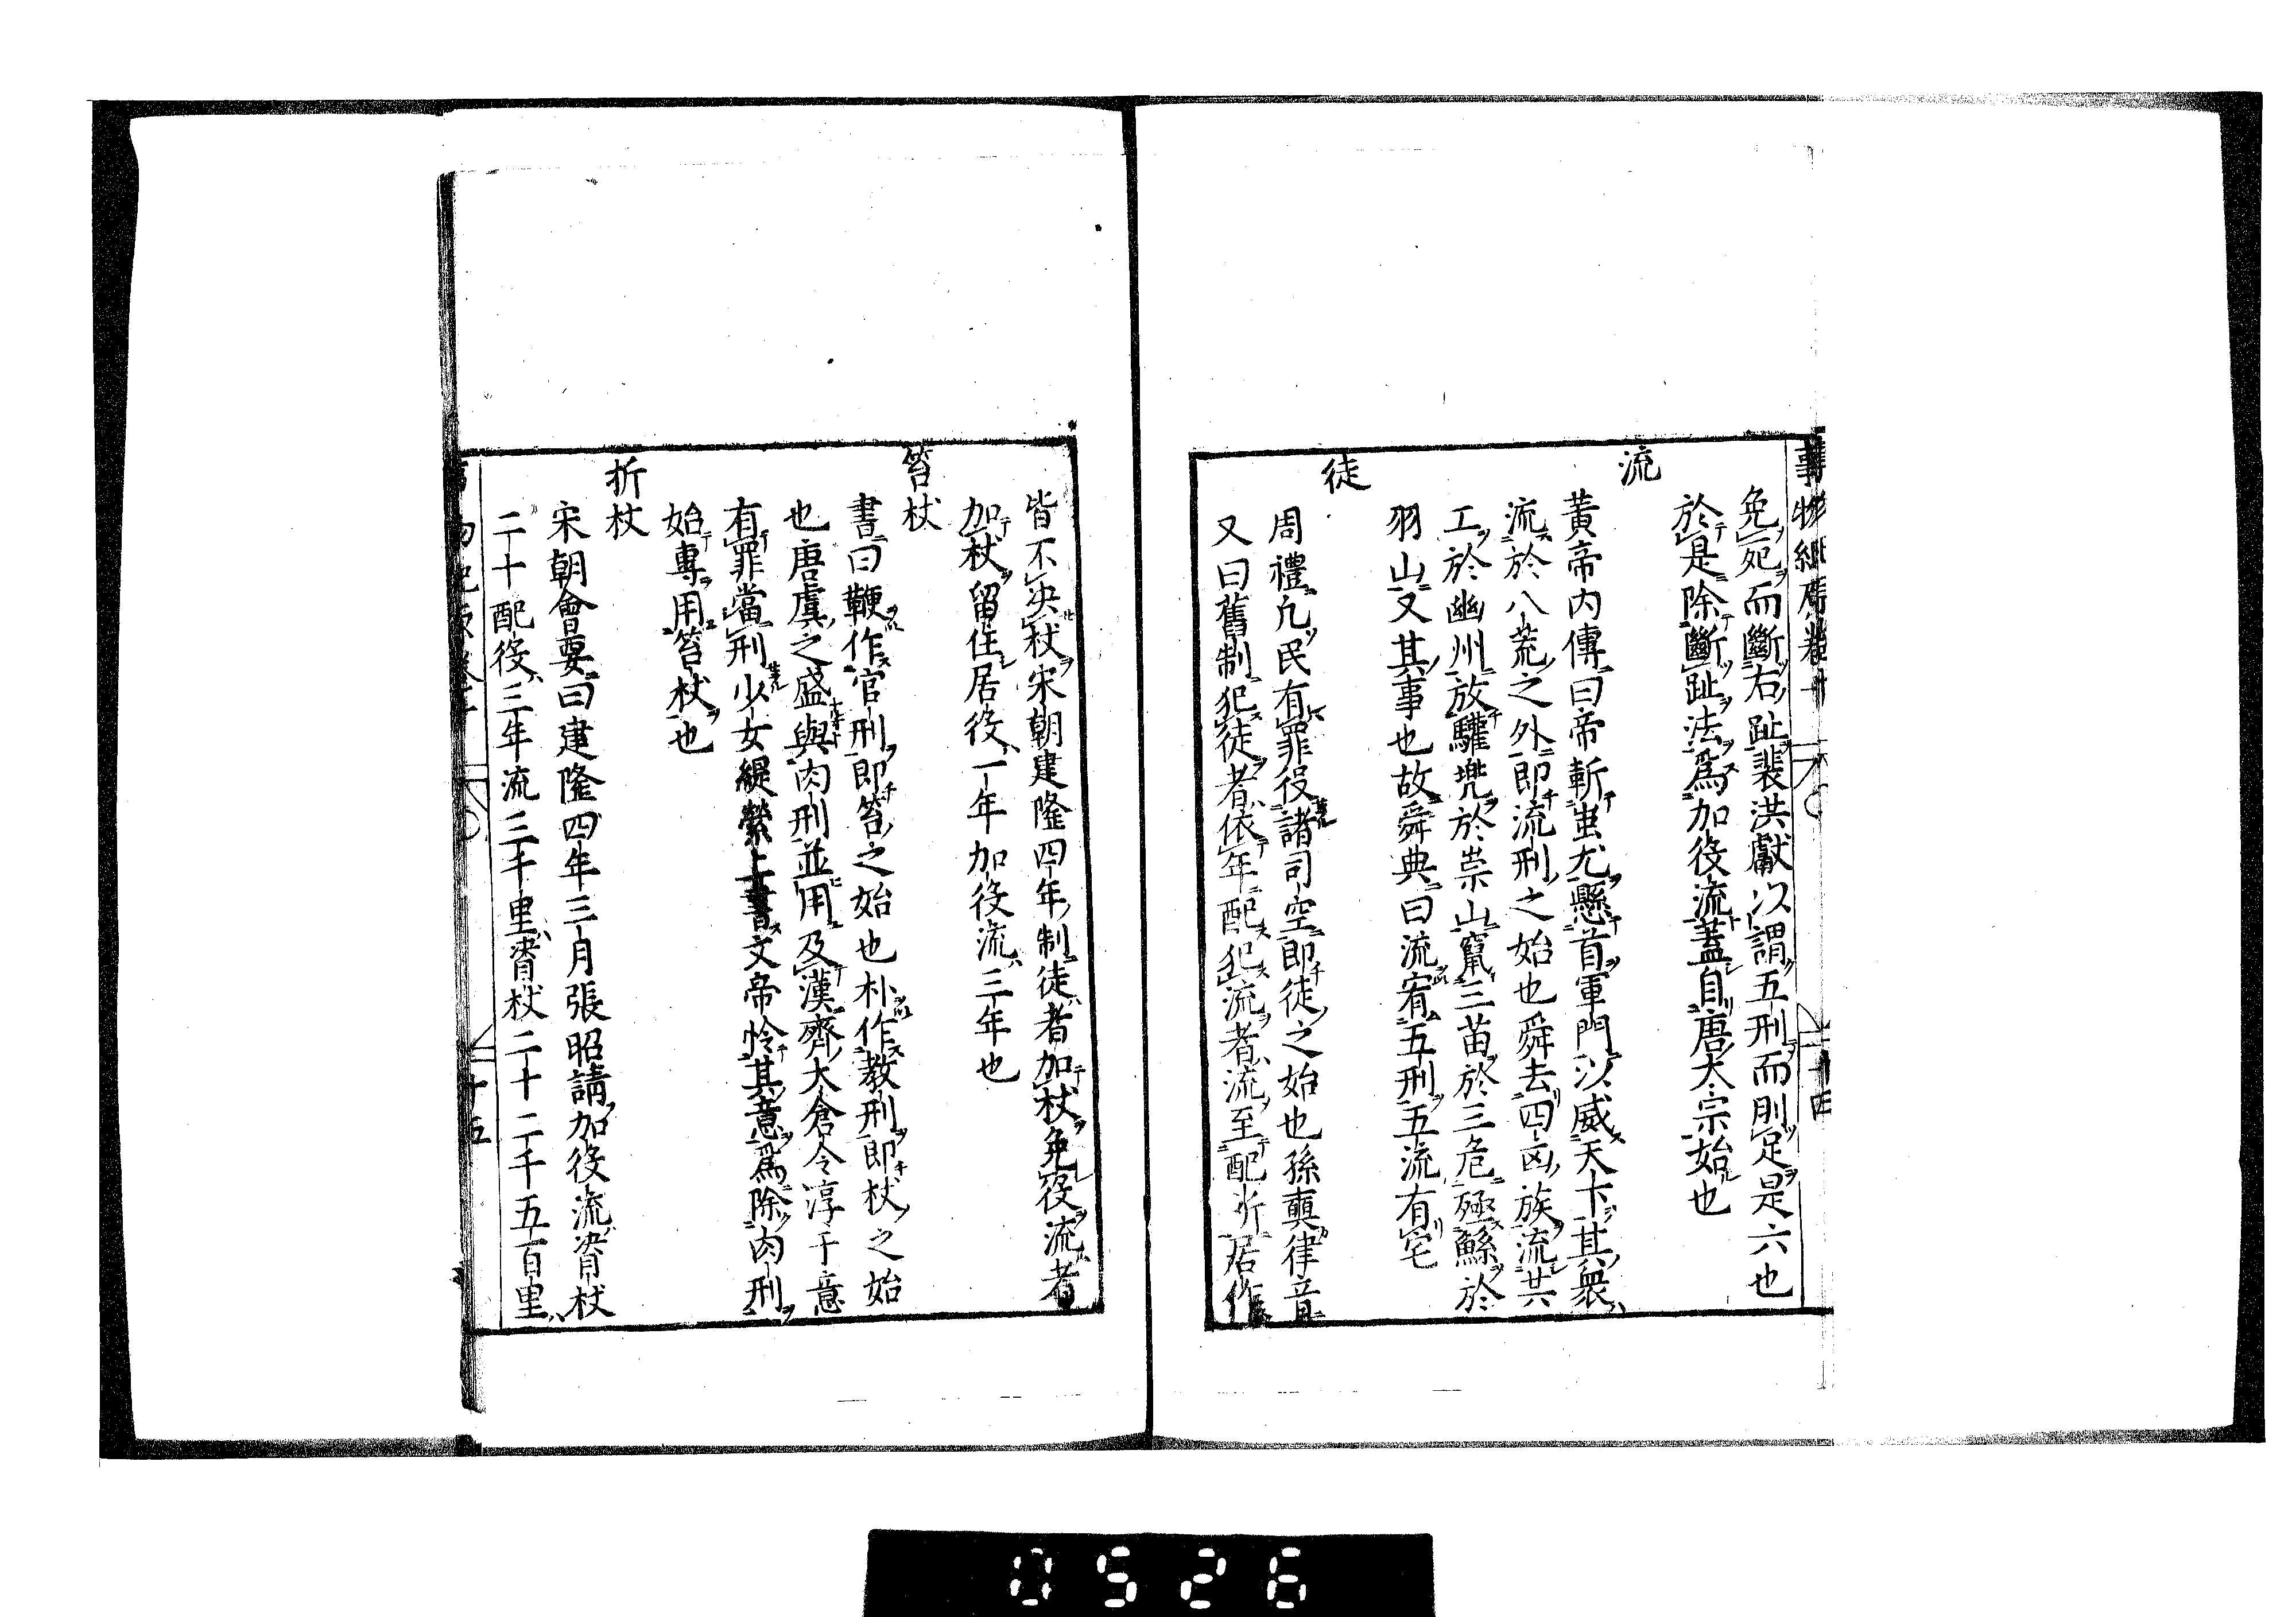 事物紀原卷十
十四
免死而斷右趾裴洪獻以謂五刑而刖足是六也
於是除斷趾法爲加役流蓋自唐太宗始也
流
黃帝内傳曰帝斬蚩尤懸首軍門以威天下其衆
流於八荒之外即流刑之始也舜去四凶族流共
工於幽州放驩兜於崇山竄三苗於三危殛鯀於
羽山又其事也故舜典曰流宥五刑五流有宅
徒
周禮凡民有罪役諸司空即徒之始也孫奭律音
又曰舊制犯徒者依年配犯流者流至配所居作
皆不決杖宋朝建隆四年制徒者加杖免役流者
加杖留住居役一年加役流三年也
笞杖
書曰鞭作官刑即笞之始也朴作教刑即杖之始
也唐虞之盛與肉刑並用及漢齊大倉令淳于意
有罪當刑少女緹縈上書文帝怜其意爲除肉刑
始專用笞杖也
折杖
宋朝會要曰建隆四年三月張昭請加役流脊杖
二十配役三年流三千里脊杖二十二千五百里
十五
0526